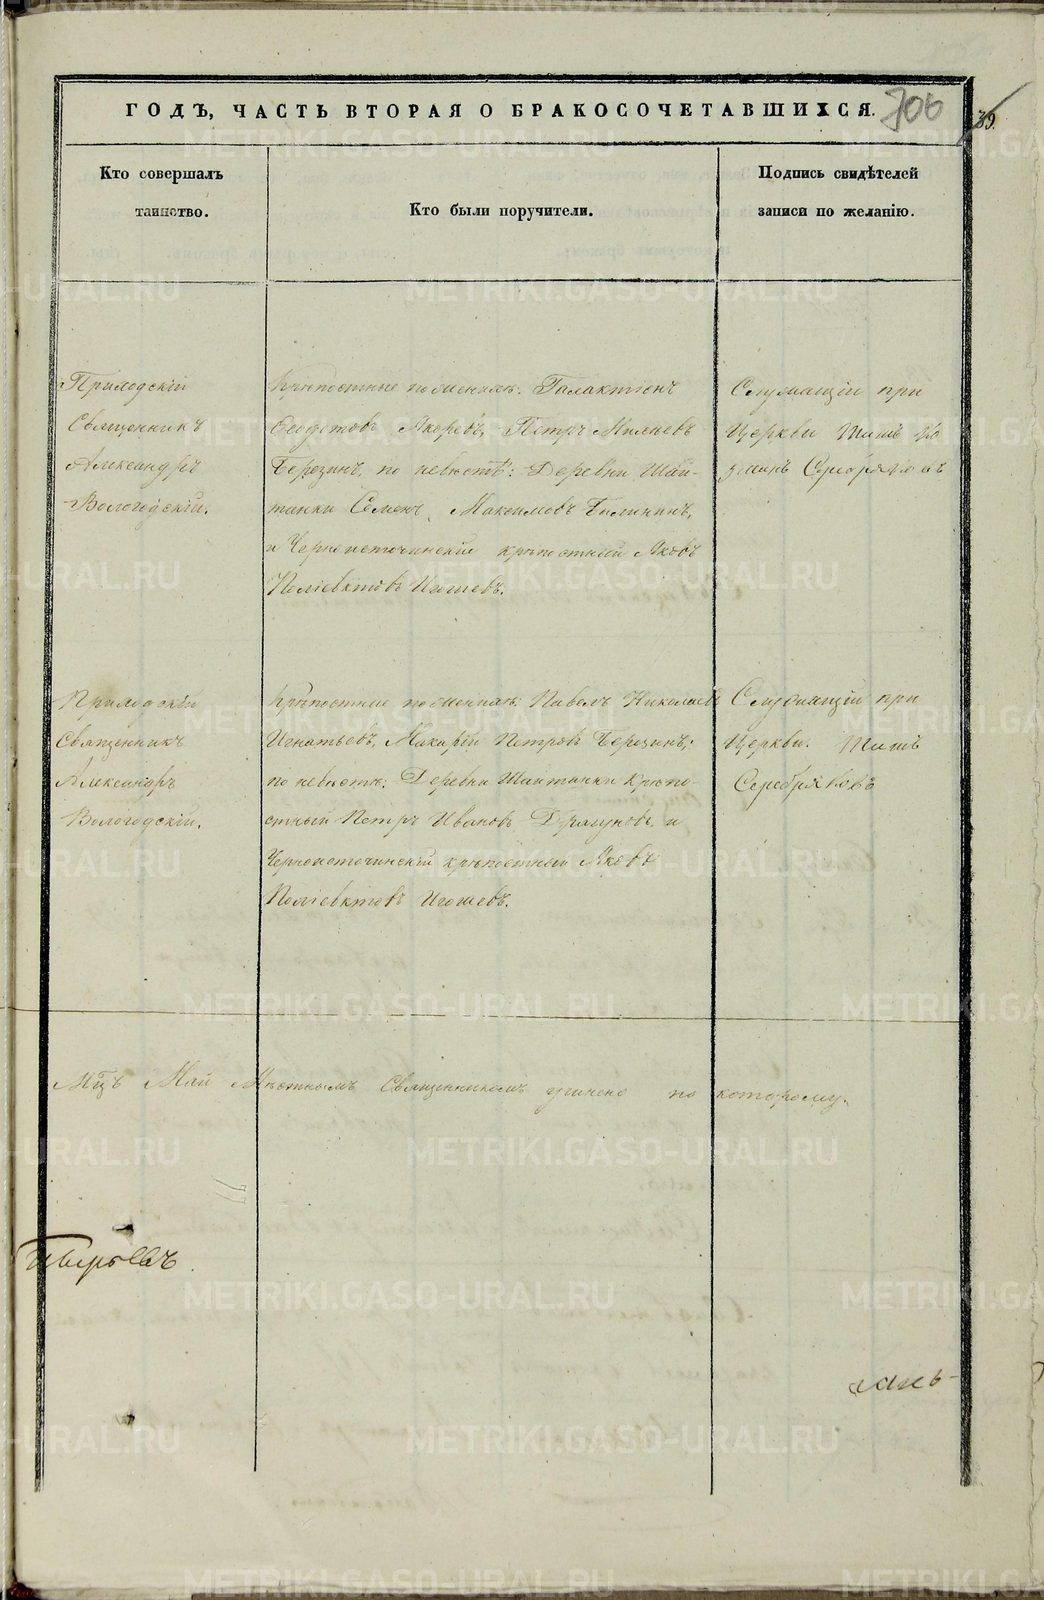 ГОДЪ, ЧАСТЬ ВТОРАЯ О БРАКОСОЧЕТАВШИХСЯ.
706
39.
Кто совершалъ
таинство.
Кто были поручители.
Подпись свидѣтелей
записи по желанію.
Приходскій
Священникъ
Александръ
Вологодскій.
Крѣпостные по женихѣ: Галактіонъ
Ѳедотовъ Петръ
Березинъ, по невѣстѣ: Деревни Шай-
танки Семенъ Максимовъ
и Черноисточинскій крѣпостный Яковъ
Поліевктовъ Игошевъ.
Служащій при
Церкви
Серебряковъ
Приходскій
Священникъ
Александръ
Вологодскій.
Крѣпостные по женихѣ: Павелъ Николаевъ
Игнатьевъ, Макарій Петровъ Березинъ;
по невѣстѣ: Деревни Шайтанки Крѣпо-
стный Петръ Ивановъ Драгуновъ, и
Черноисточинскій крѣпостный Яковъ
Поліевктовъ Игошевъ.
Служащій при
Церкви
Серебряковъ
Май Мѣстнымъ Священникомъ учинено по которому.
METRIKI.GASO-URAL.RU